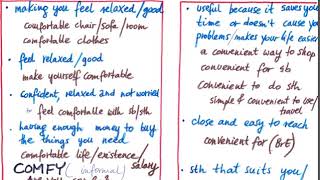 making you feel relaxed/good
comfortable chair/sofa/room
comfortable clothes
feel relaxed/good
make yourself comfortable
confident, relaxed and not worried
~ feel comfortable with sb/sth
having enough money to buy
the things you need
comfortable life/existence/
salary
COMFY (informal)
useful because it saves you
time or doesn't cause you
problems/makes your life easier
a convenient way to shop
convenient for sb
convenient to do sth
simple & convenient to use/
travel
close and easy to reach
convenient for (BrE)
sth that suits you/